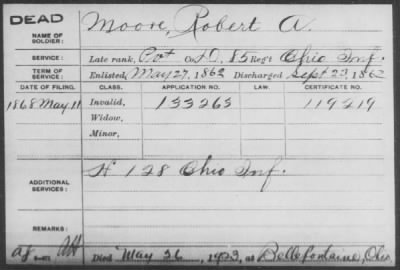 DEAD
NAME OF SOLDIER: Moore, Robert A.
SERVICE: Late rank, Pvt Co. D, 85 Reg't Ohio Inf.
TERM OF SERVICE: Enlisted May 27, 1862 Discharged Sept 23, 1862
DATE OF FILING. CLASS. APPLICATION NO. LAW. CERTIFICATE NO.
1868 May 11 Invalid, 133263 119219
Widow,
Minor,
ADDITIONAL SERVICES: H 128 Ohio Inf.
REMARKS:
Died May 26, 1923, at Bellefontaine, Ohio